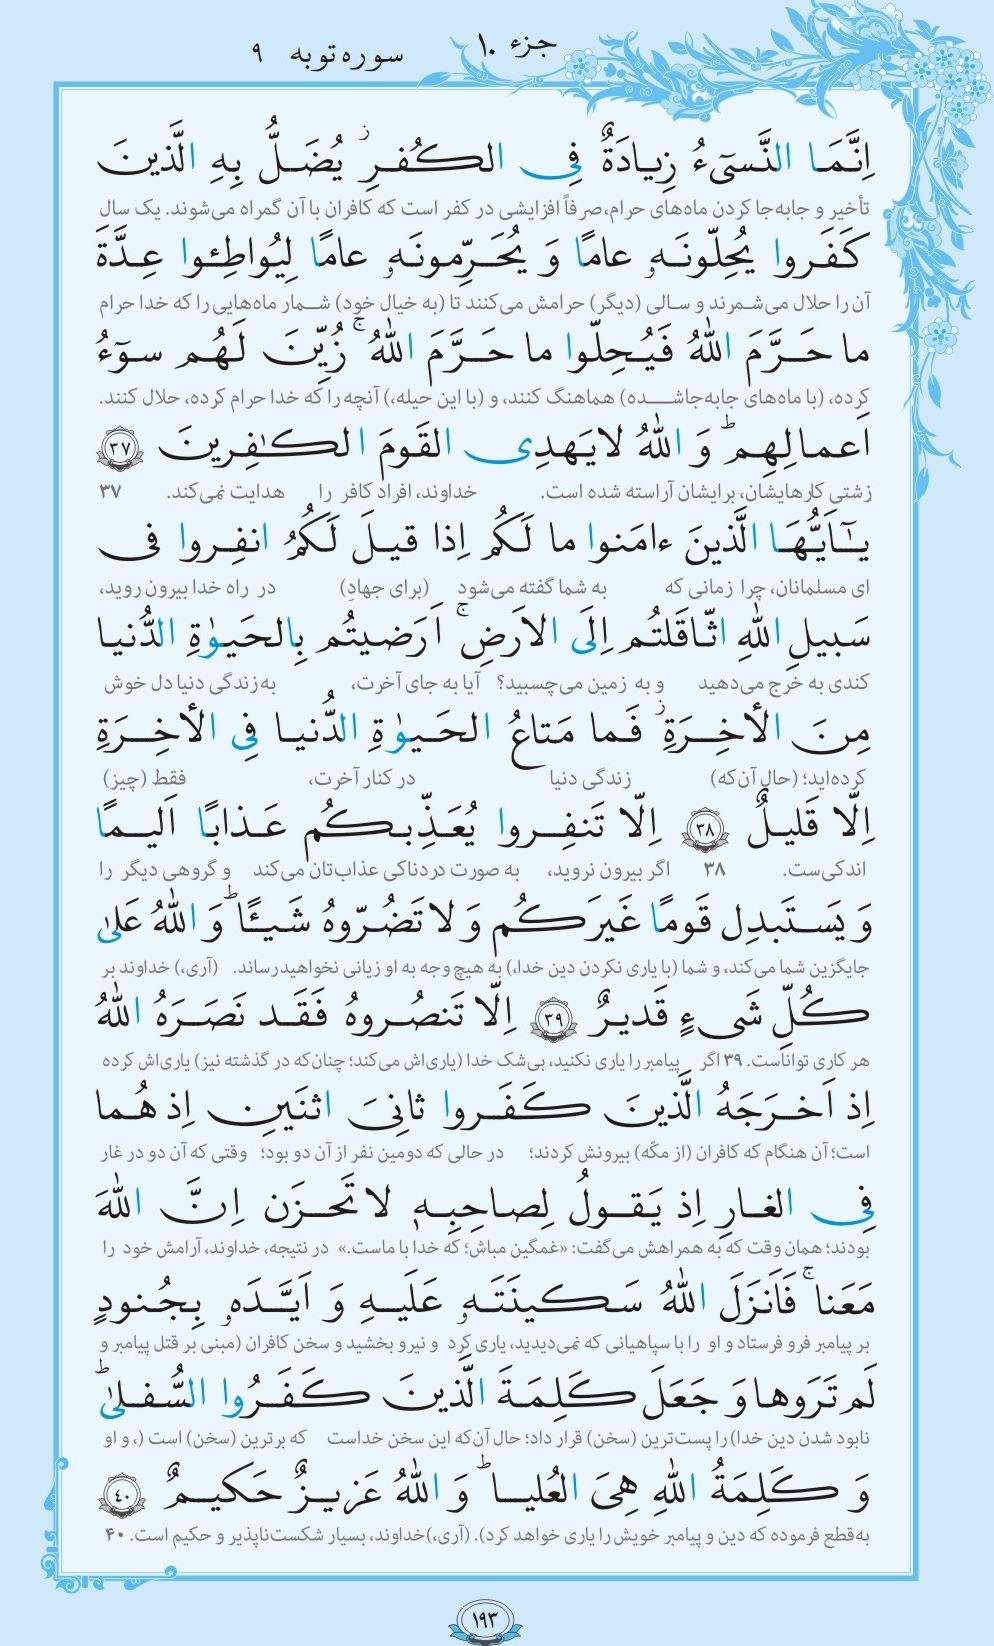 جزء ۱۰
سوره توبه ۹
اِنَّمَا النَّسیٓءُ زِیادَةٌ فِی الکُفرِ ۖ یُضَلُّ بِهِ الَّذینَ
تأخیر و جابه‌جا کردن ماه‌های حرام، صرفاً افزایشی در کفر است که کافران با آن گمراه می‌شوند. یک سال
کَفَروا یُحِلّونَهٗ عامًا وَ یُحَرِّمونَهٗ عامًا لِیُواطِئوا عِدَّةَ
آن را حلال می‌شمرند و سالی (دیگر) حرامش می‌کنند تا (به خیال خود) شمار ماه‌هایی را که خدا حرام
ما حَرَّمَ اللهُ فَیُحِلّوا ما حَرَّمَ اللهُ ۚ زُیِّنَ لَهُم سوٓءُ
کرده، (با ماه‌های جابه‌جاشده) هماهنگ کنند، و (با این حیله،) آنچه را که خدا حرام کرده، حلال کنند.
اَعمالِهِم ؕ وَ اللهُ لا یَهدِی القَومَ الکٰفِرینَ ۳۷
زشتی کارهایشان، برایشان آراسته شده است. خداوند، افراد کافر را هدایت نمی‌کند. ۳۷
یٰٓاَیُّهَا الَّذینَ ءامَنوا ما لَکُم اِذا قیلَ لَکُمُ انفِروا فی
ای مسلمانان، چرا زمانی که به شما گفته می‌شود (برای جهادِ) در راه خدا بیرون روید،
سَبیلِ اللهِ اثّاقَلتُم اِلَی الاَرضِ ۚ اَرَضیتُم بِالحَیوٰةِ الدُّنیا
کندی به خرج می‌دهید و به زمین می‌چسبید؟ آیا به جای آخرت، به زندگی دنیا دل خوش
مِنَ الأخِرَةِ ۖ فَما مَتاعُ الحَیوٰةِ الدُّنیا فِی الأخِرَةِ
کرده‌اید؛ (حال آن‌که) زندگی دنیا در کنار آخرت، فقط (چیز)
اِلّا قَلیلٌ ۳۸ اِلّا تَنفِروا یُعَذِّبکُم عَذابًا اَلیمًا
اندکی‌ست. ۳۸ اگر بیرون نروید، به صورت دردناکی عذاب‌تان می‌کند و گروهی دیگر را
وَ یَستَبدِل قَومًا غَیرَکُم وَ لا تَضُرّوهُ شَیـًٔا ؕ وَ اللهُ عَلیٰ
جایگزین شما می‌کند، و شما (با یاری نکردن دین خدا،) به هیچ وجه به او زیانی نخواهید رساند. (آری،) خداوند بر
کُلِّ شَیءٍ قَدیرٌ ۳۹ اِلّا تَنصُروهُ فَقَد نَصَرَهُ اللهُ
هر کاری تواناست. ۳۹ اگر پیامبر را یاری نکنید، بی‌شک خدا (یاری‌اش می‌کند؛ چنان‌که در گذشته نیز) یاری‌اش کرده
اِذ اَخرَجَهُ الَّذینَ کَفَروا ثانِیَ اثنَینِ اِذ هُما
است؛ آن هنگام که کافران (از مکّه) بیرونش کردند؛ در حالی که دومین نفر از آن دو بود؛ وقتی که آن دو در غار
فِی الغارِ اِذ یَقولُ لِصاحِبِهٖ لا تَحزَن اِنَّ اللهَ
بودند؛ همان وقت که به همراهش می‌گفت: «غمگین مباش؛ که خدا با ماست.» در نتیجه، خداوند، آرامش خود را
مَعَنا ۚ فَاَنزَلَ اللهُ سَکینَتَهٗ عَلَیهِ وَ اَیَّدَهٗ بِجُنودٍ
بر پیامبر فرو فرستاد و او را با سپاهیانی که نمی‌دیدید، یاری کرد و نیرو بخشید و سخن کافران (مبنی بر قتل پیامبر و
لَم تَرَوها وَ جَعَلَ کَلِمَةَ الَّذینَ کَفَرُوا السُّفلیٰ ؕ
نابود شدن دین خدا) را پست‌ترین (سخن) قرار داد؛ حال آن‌که این سخن خداست که برترین (سخن) است (، و او
وَ کَلِمَةُ اللهِ هِیَ العُلیا ؕ وَ اللهُ عَزیزٌ حَکیمٌ ۴۰
به‌قطع فرموده که دین و پیامبر خویش را یاری خواهد کرد). (آری،) خداوند، بسیار شکست‌ناپذیر و حکیم است. ۴۰
۱۹۳